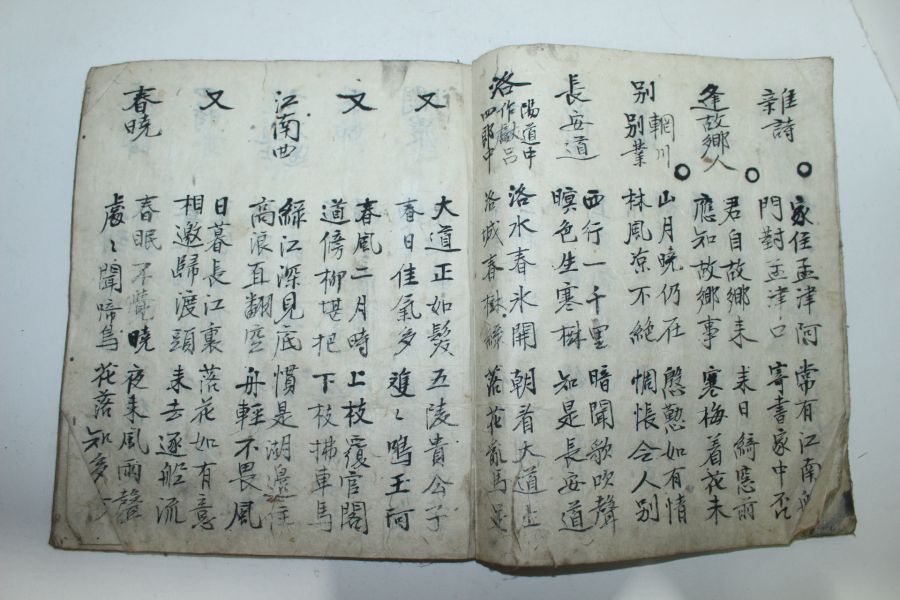 雜詩
家住孟津阿 常有江南
門對孟津口 寄書家中否
逢故鄉人
君自故鄉来 来日綺窓前
應知故鄉事 寒梅着花未
別輞川別業
山月曉仍在 慇懃如有情
林風凉不絶 惆悵令人別
長安道
西行一千里 暗聞歌吹聲
暝色生寒樹 知是長安道
洛陽道中作獻呂四郎中
洛水春氷開 朝看大道上
洛城春樹綠 落花亂馬足
又
大道正如髮 五陵貴公子
春日佳氣多 雙〻鳴玉珂
又
春風二月時 上枝覆官閣
道傍柳堪把 下枝拂車馬
江南曲
綠江深見底 慣是湖邊住
高浪直翻空 舟輕不畏風
又
日暮長江裏 落花如有意
相邀歸渡頭 来去逐船流
春曉
春眠不覺曉 夜来風雨聲
處〻聞啼鳥 花落知多少